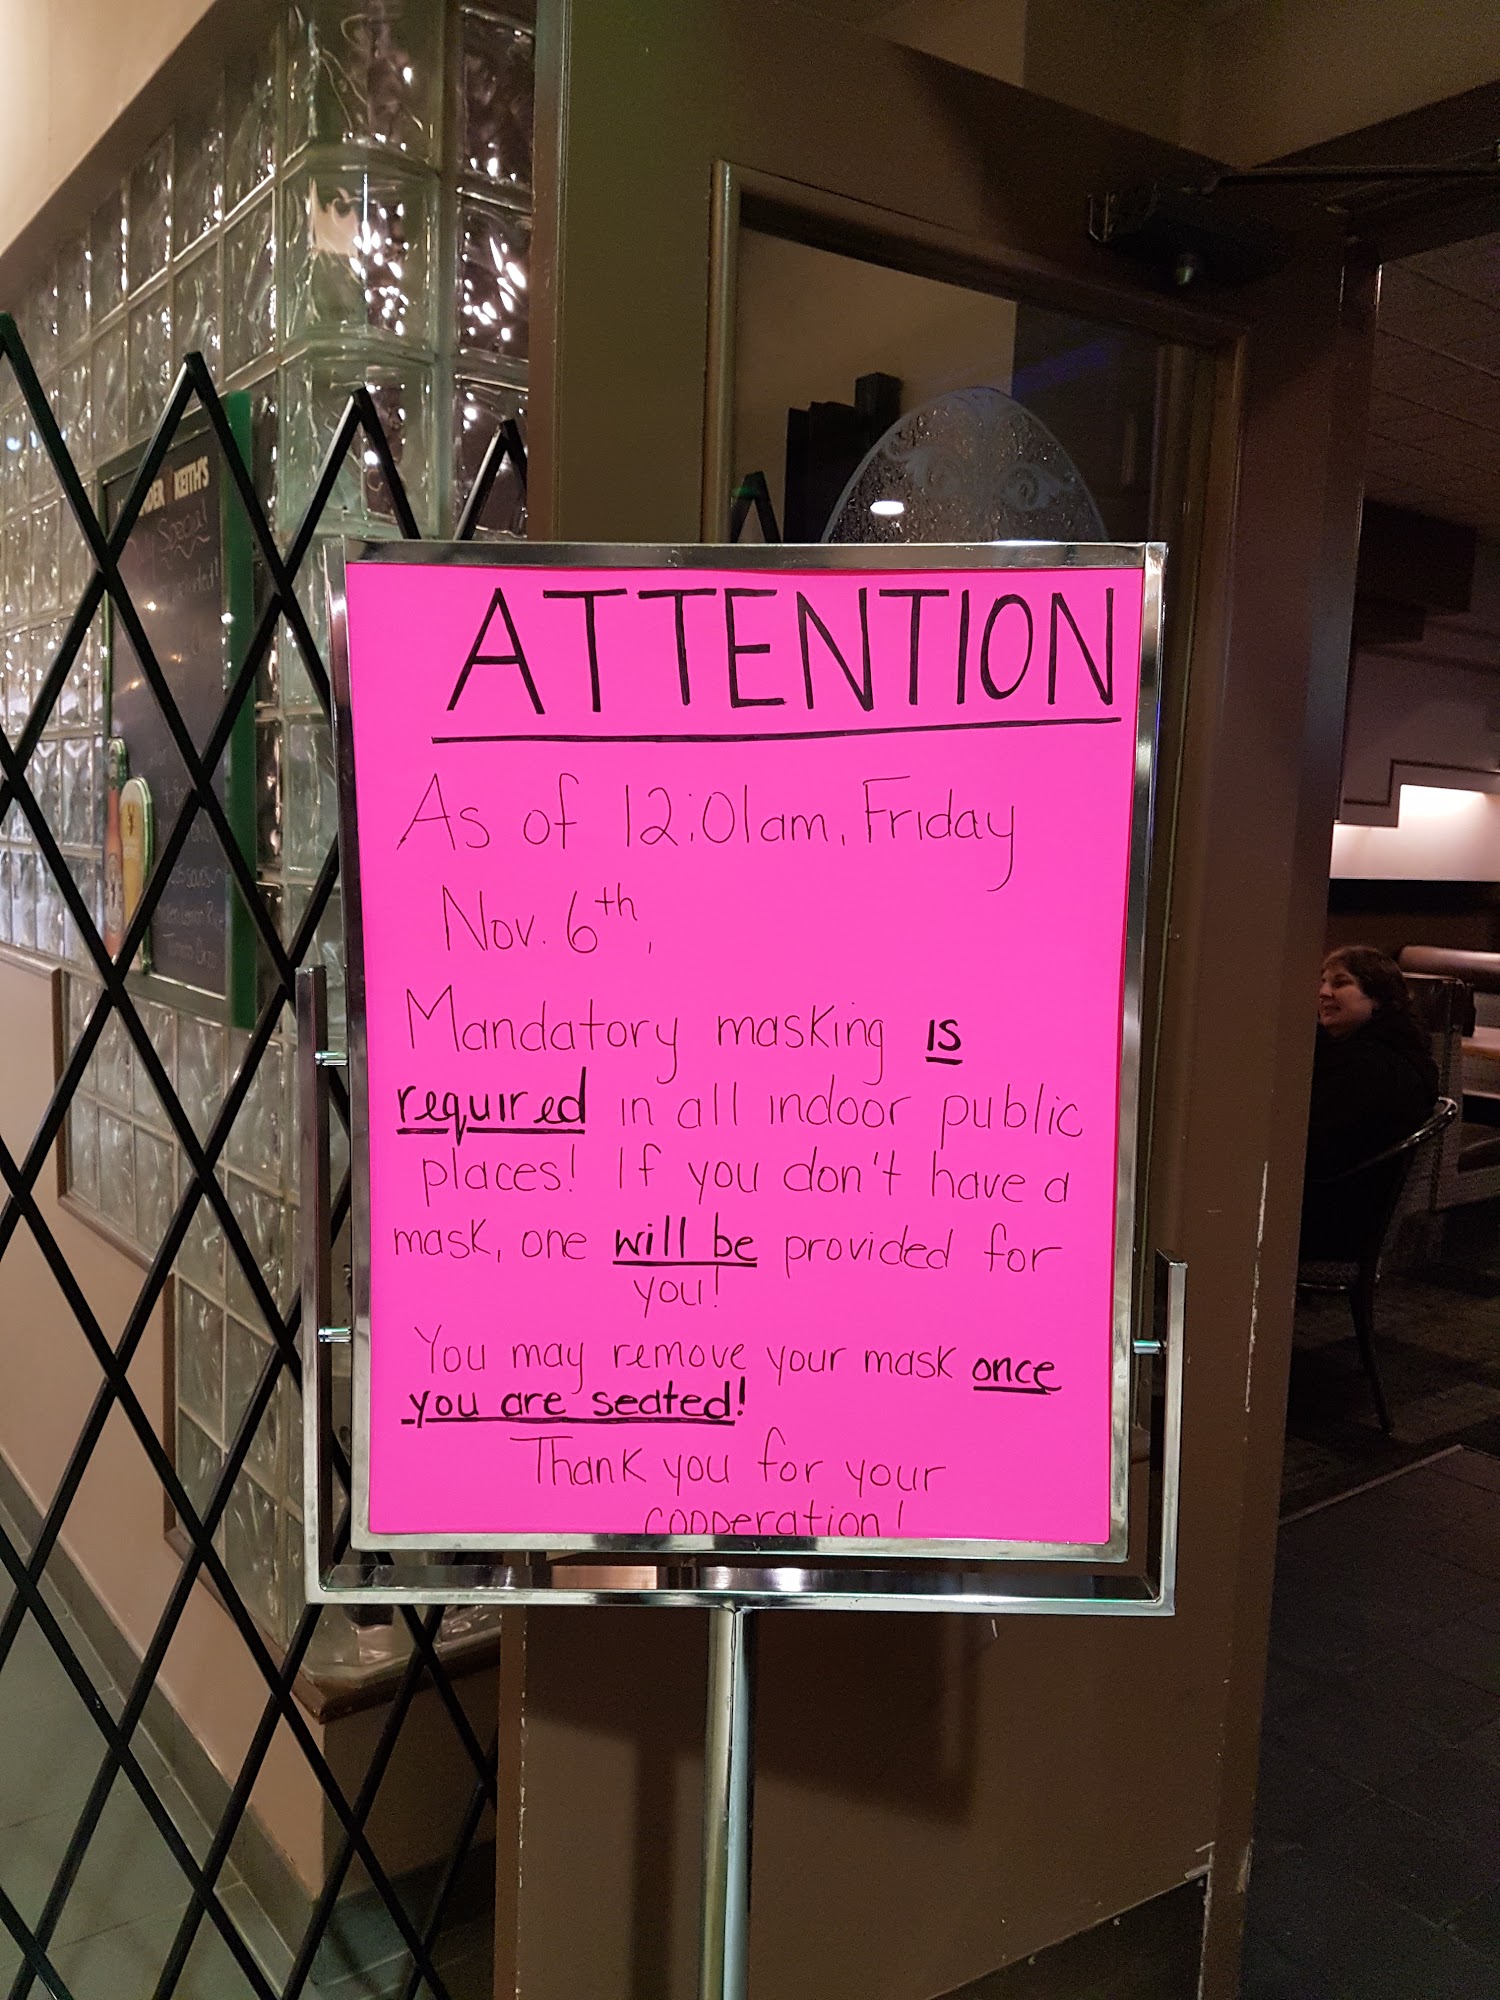 KEITH'S
Special
ATTENTION
As of 12:01am, Friday
Nov. 6th,
Mandatory masking is
required in all indoor public
places! If you don't have a
mask, one will be provided for
you!
You may remove your mask once
you are seated!
Thank you for your
cooperation!